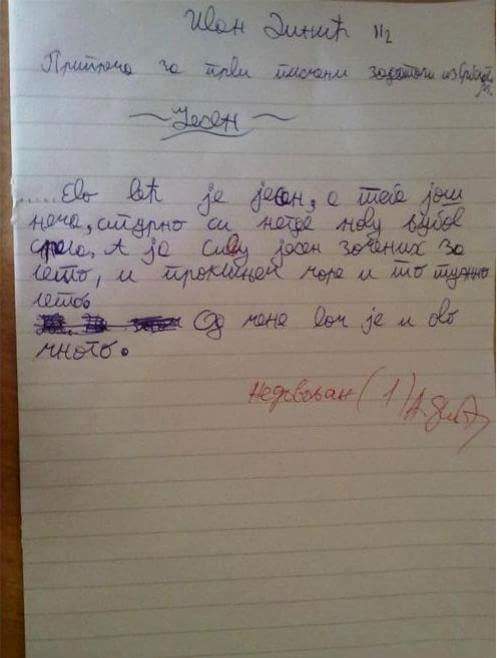 Иван Динић II2
Припрема за први писмени задатак из српског
~Јесен~
.....Ево већ је јесен, а тебе још
нема, сигурно си негде нову љубав
срела, А ја сву јесен зачених за
лето, и проклињем море и то тужно
летов
Од мене вам је и ово
много.
Недовољан (1)